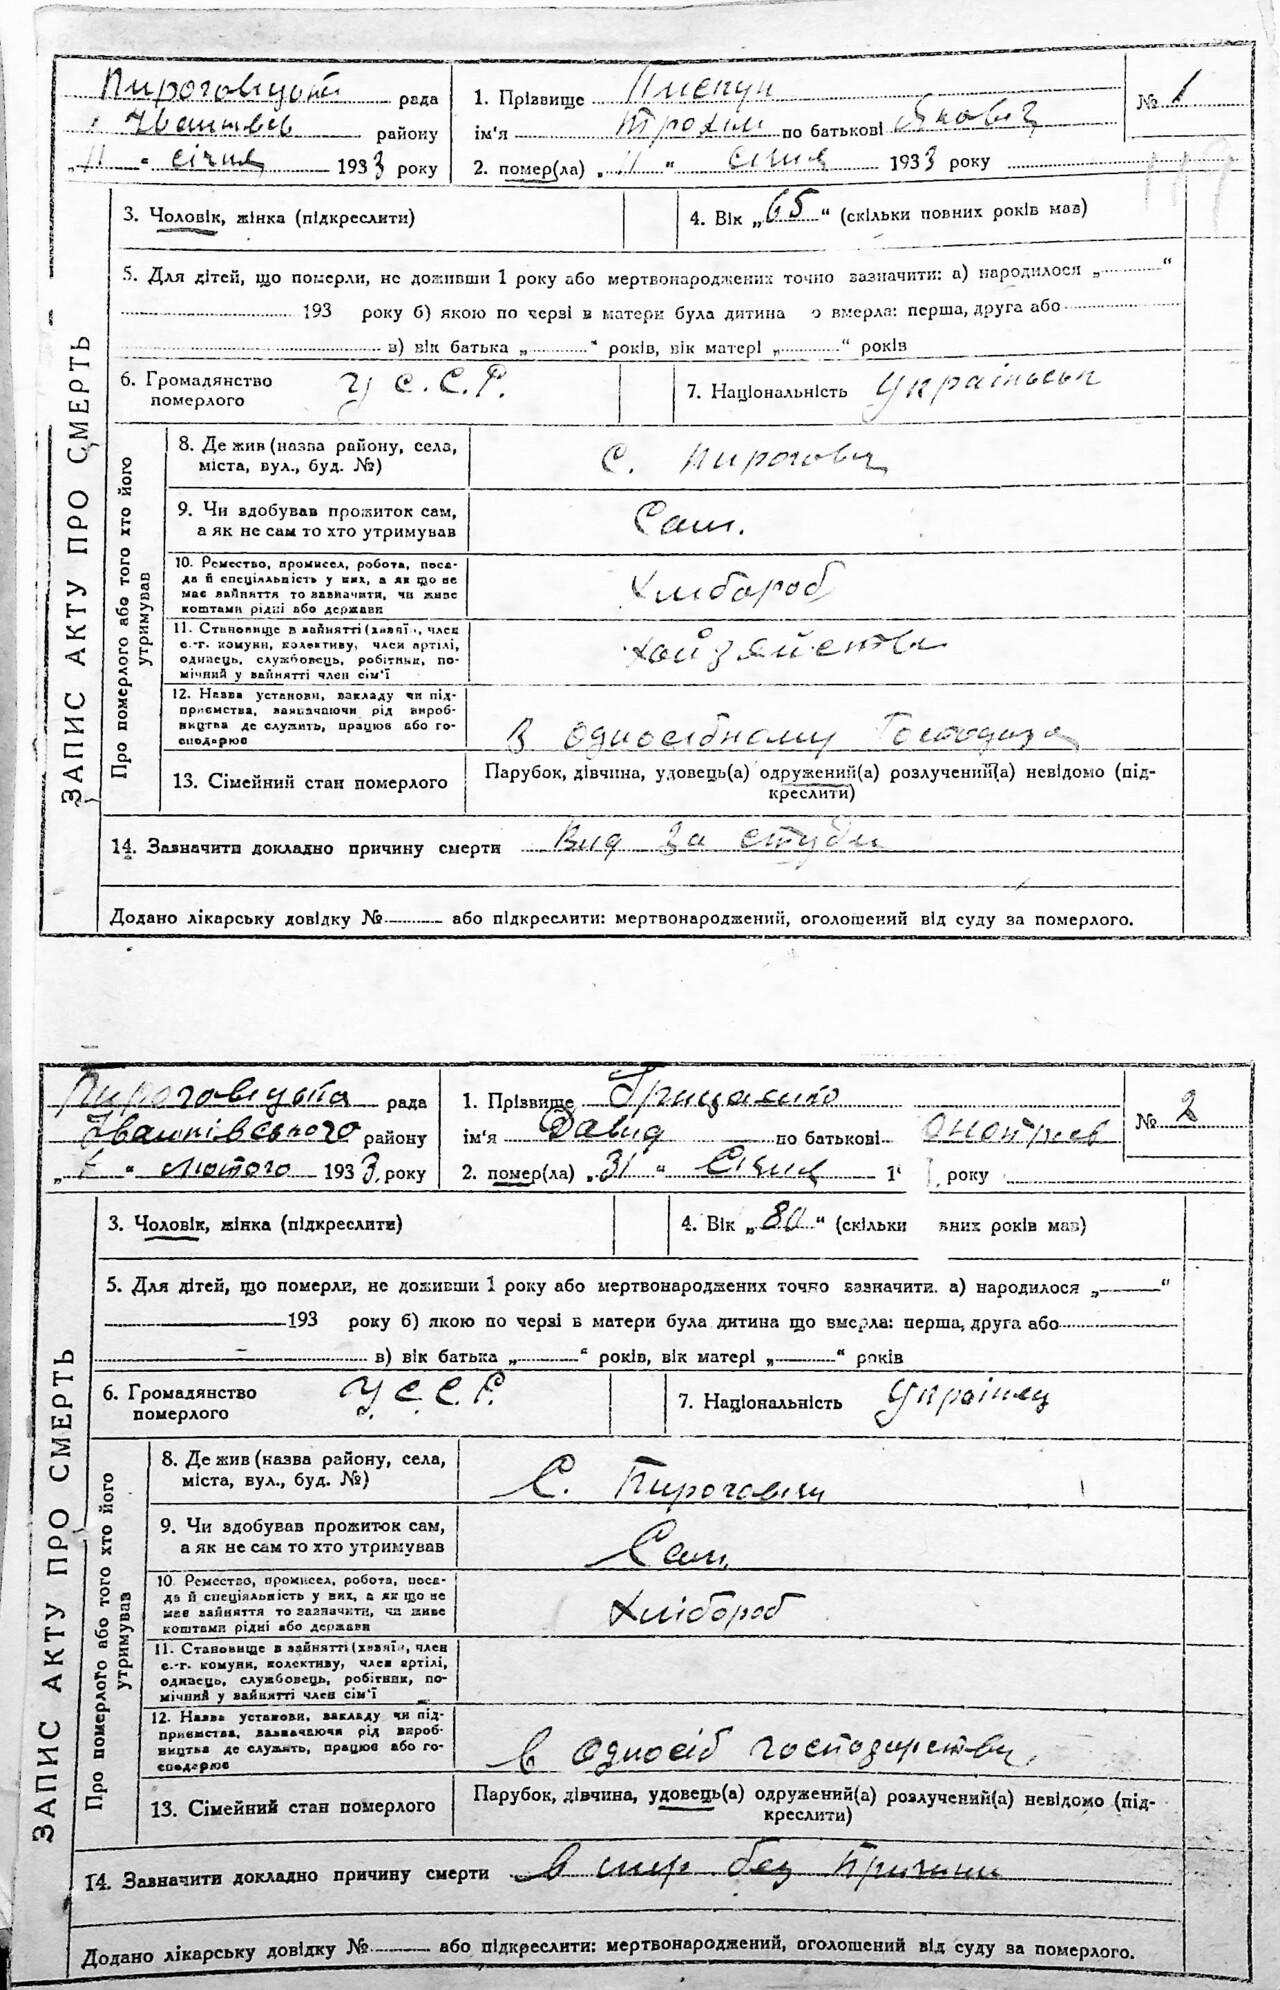 Пироговцька рада
Іванківськ району
„11“ січня 1933 року
1. Прізвище
ім'я Трохим по батькові Якович
2. помер(ла) „11“ січня 1933 року
№ 1
3. Чоловік, жінка (підкреслити)
4. Вік „65“ (скільки повних років мав)
5. Для дітей, що померли, не доживши 1 року або мертвонароджених точно зазначити: а) народилося „ “
193 року б) якою по черзі в матери була дитина що вмерла: перша, друга або
в) вік батька „ “ років, вік матері „ “ років
6. Громадянство
померлого
У С.С.Р.
7. Національність
ЗАПИС АКТУ ПРО СМЕРТЬ
Про померлого або того хто його
утримував
8. Де жив (назва району, села,
міста, вул., буд. №)
С. Пирогови
9. Чи вдобував прожиток сам,
а як не сам то хто утримував
Сам.
10. Ремество, промисел, робота, поса-
да й спеціяльність у них, а як що не
має вайняття то вазначити, чи живе
коштами рідні або держави
Хлібороб
11. Становище в вайнятті (хазяїн, член
с.-г. комуни, колективу, член артілі,
одинець, службовець, робітник, по-
мічний у вайнятті член сім'ї
12. Назва установи, вакладу чи під-
приємства, вазначаючи рід вироб-
ництва де служить, працює або го-
сподарює
В односібному
13. Сімейний стан померлого
Парубок, дівчина, удовець(а) одружений(а) розлучений(а) невідомо (під-
креслити)
14. Зазначити докладно причину смерти Вид за студи
Додано лікарську довідку № або підкреслити: мертвонароджений, оголошений від суду за померлого.
Пироговцька рада
Іванківського району
лютого 1933 року
1. Прізвище Грицаенко
ім'я Давид по батькові
2. помер(ла) „31“ Січня 1 року
№ 2
3. Чоловік, жінка (підкреслити)
4. Вік „80“ (скільки вних років мав)
5. Для дітей, що померли, не доживши 1 року або мертвонароджених точно зазначити. а) народилося „ “
193 року б) якою по черзі в матери була дитина що вмерла: перша, друга або
в) вік батька „ “ років, вік матері „ “ років
6. Громадянство
померлого
У С.С.Р.
7. Національність Українец
ЗАПИС АКТУ ПРО СМЕРТЬ
Про померлого або того хто його
утримував
8. Де жив (назва району, села,
міста, вул., буд. №)
С. Пироговци
9. Чи вдобував прожиток сам,
а як не сам то хто утримував
Сам.
10 Ремество, промисел, робота, поса-
да й спеціяльність у них, а як що не
має вайняття то зазначити, чи живе
коштами рідні або держави
Хлібороб
11. Становище в вайнятті (хазяїн, член
с.-г. комуни, колективу, член артілі,
одинець, службовець, робітник, по-
мічний у вайнятті член сім'ї
12. Назва установи, вакладу чи під-
приємства, вазначаючи рід вироб-
ництва де служить, працює або го-
сподарює
в односіб господарстви
13. Сімейний стан померлого
Парубок, дівчина, удовець(а) одружений(а) розлучений(а) невідомо (під-
креслити)
14. Зазначити докладно причину смерти в мир без причини
Додано лікарську довідку № або підкреслити: мертвонароджений, оголошений від суду за померлого.